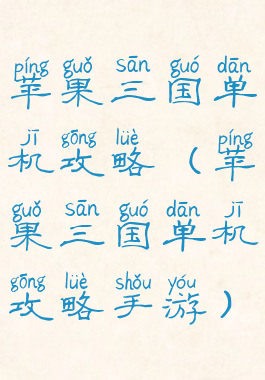 píng guǒ sān guó dān
苹果三国单
jī gōng lüè píng
机攻略（苹
guǒ sān guó dān jī
果三国单机
gōng lüè shǒu yóu
攻略手游）